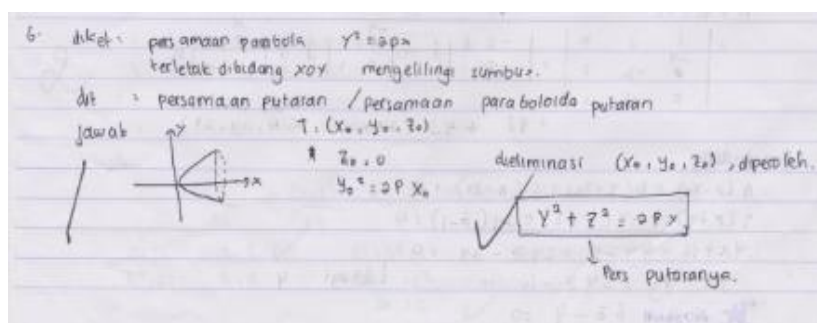 6. diket : persamaan parabola Y² = 2px
terletak dibidang xoy mengelilingi sumbux.
dit : persamaan putaran / persamaan paraboloida putaran
jawab
Y
x
T. (x₀, y₀, z₀)
* z₀ = 0
y₀² = 2P x₀
dieliminasi (x₀, y₀, z₀), diperoleh.
Y² + Z² = 2Px
Pers putaranya.